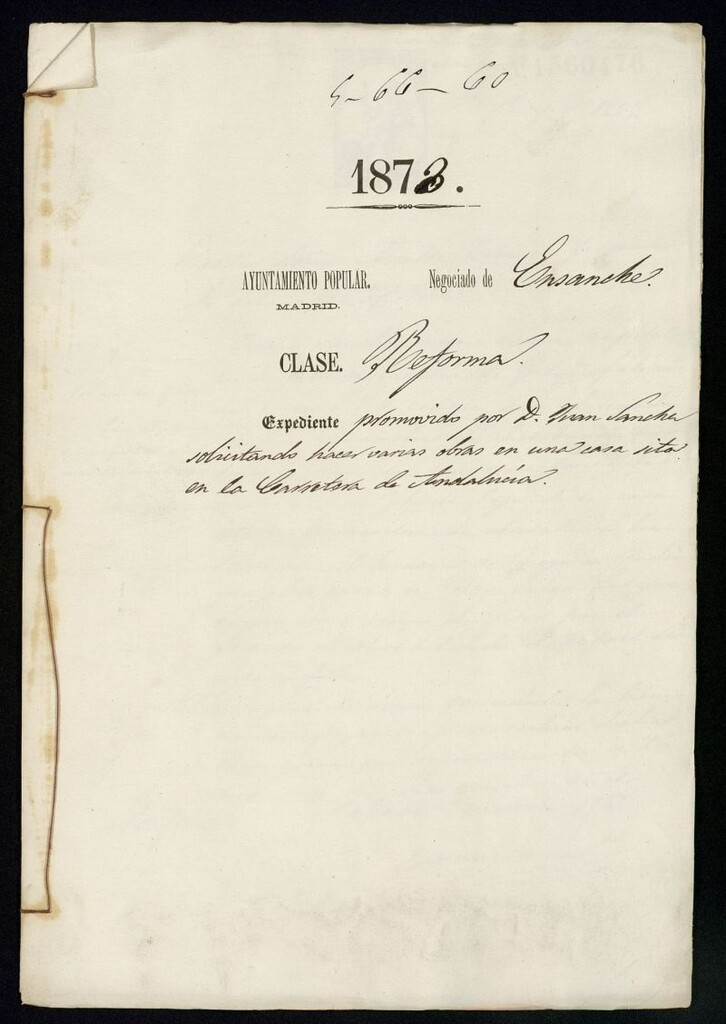 5-66-60
1873.
AYUNTAMIENTO POPULAR. Negociado de Ensanche.
MADRID.
CLASE. Reforma.
Expediente promovido por D. Juan Sanchez
solicitando hacer varias obras en una casa sita
en la Carretera de Andalucia.